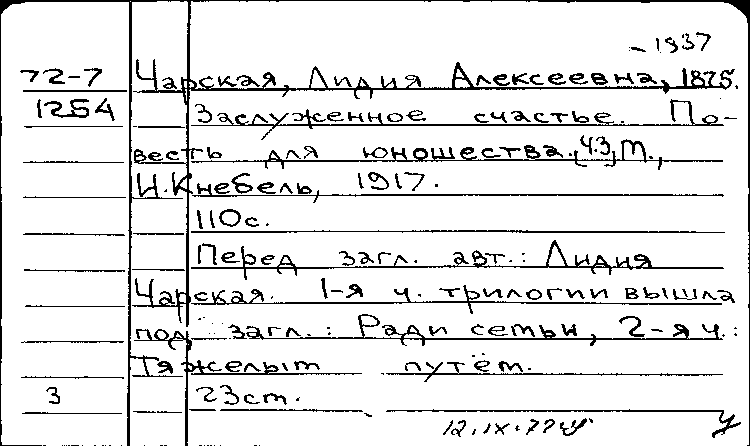 – 1937
72-7 Чарская, Лидия Алексеевна, 1875.
1254 Заслуженное счастье. По-
весть для юношества. [Ч.3,] М.,
И. Кнебель, 1917.
110 с.
Перед загл. авт.: Лидия
Чарская. 1-я ч. трилогии вышла
под загл.: Ради семьи, 2-я ч.:
Тяжелым путём.
3 23 см.
12.IX.77